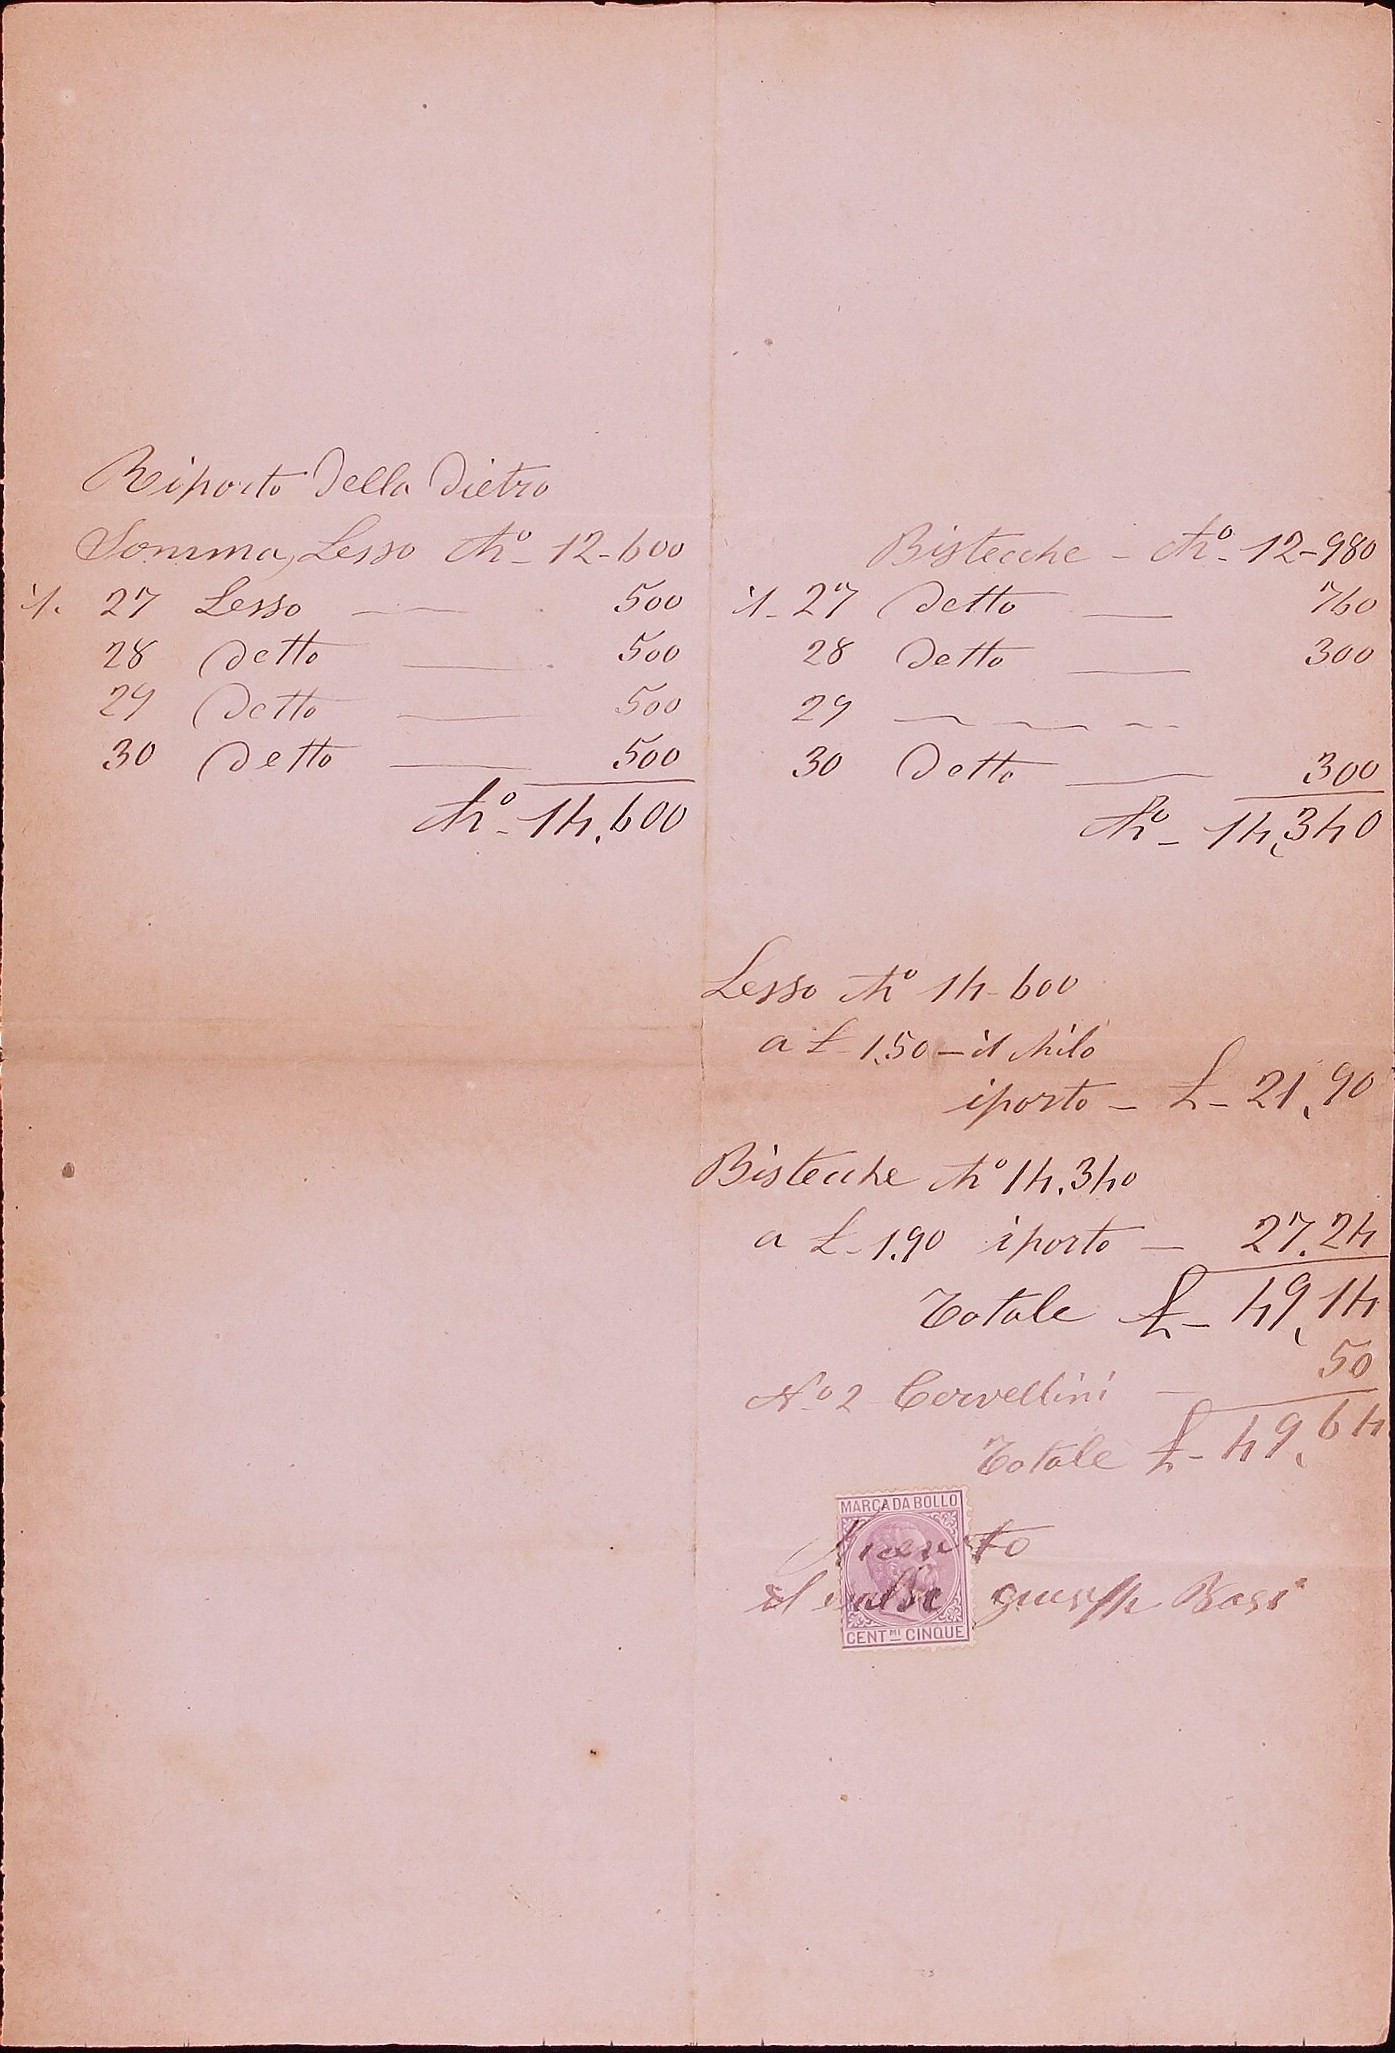 Riporto della dietro
Somma, Lesso Kº - 12-600
27 Lesso 500
28 detto 500
29 detto 500
30 detto 500
Kº - 14.600
Bistecche - Kº - 12-980
27 detto 760
28 detto 300
29
30 detto 300
Kº - 14,340
Lesso Kº 14-600
a £ 1.50 - il kilo
iporto - £ - 21,90
Bistecche Kº 14.340
a £ - 1.90 iporto - 27.24
Totale £ - 49,14
Nº 2 Cervellini - 50
Totale £ - 49,64
MARCA DA BOLLO
il saldo Giuseppe
CENT.MI CINQUE